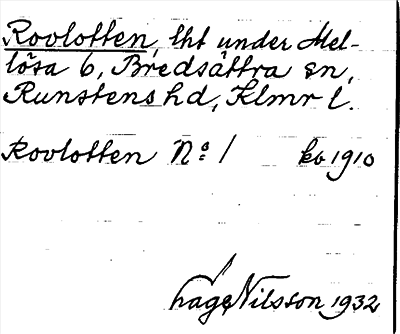 Rovlotten, lht under Mel-
lösa 6, Bredsättra sn,
Runstens hd, Klmr l.
Rovlotten No 1 kb 1910
Nilsson 1932